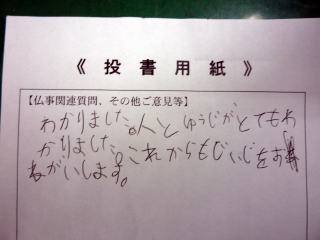 《 投 書 用 紙 》
【仏事関連質問、その他ご意見等】
わかりました。人とゆうじがとてもわ
かりました。これからもじいじをお
ねがいします。